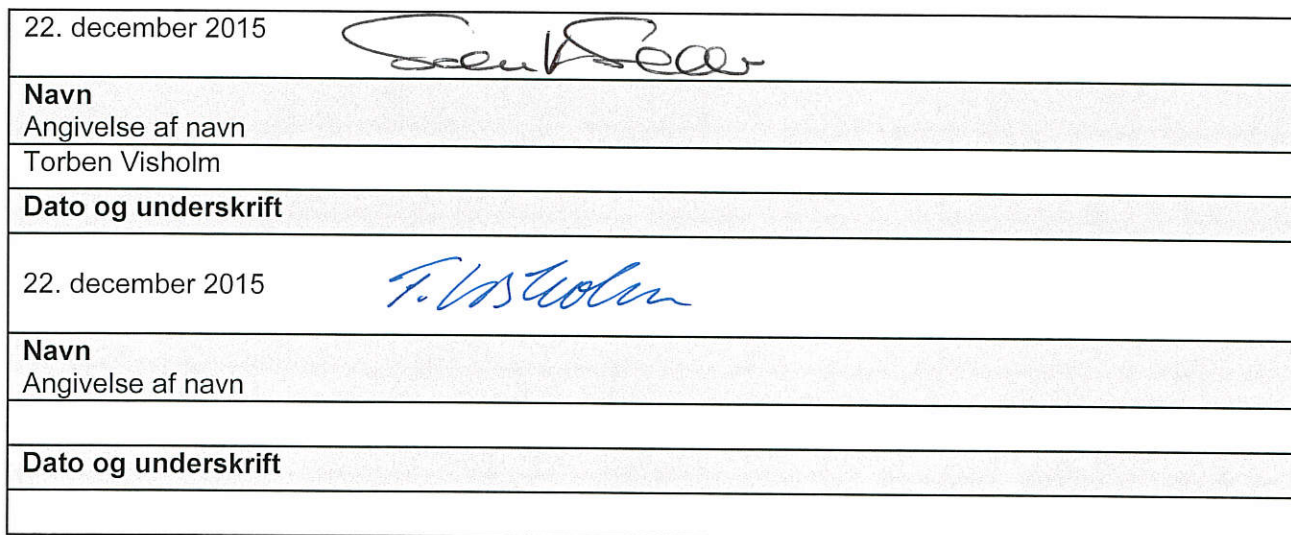 22. december 2015
Navn
Angivelse af navn
Torben Visholm
Dato og underskrift
22. december 2015 T. Visholm
Navn
Angivelse af navn
Dato og underskrift